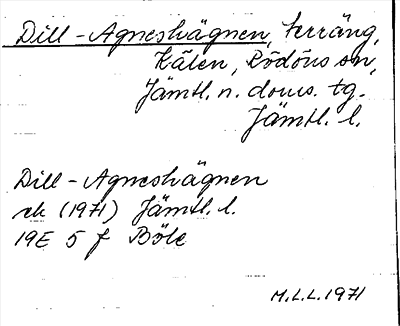 Dill-Agneshägnen, terräng,
Kälen, Rödöns sn,
Jämtl. n. doms. tg.
Jämtl. l.
Dill-Agneshägnen
ek (1971) Jämtl. l.
19E 5 f Böle
M.L.L. 1971